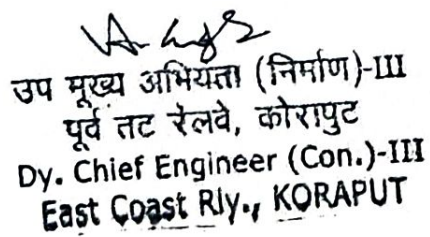 उप मूख्य अभियता (निर्माण)-III
पूर्व तट रेलवे, कोरापुट
Dy. Chief Engineer (Con.)-III
East Coast Rly., KORAPUT